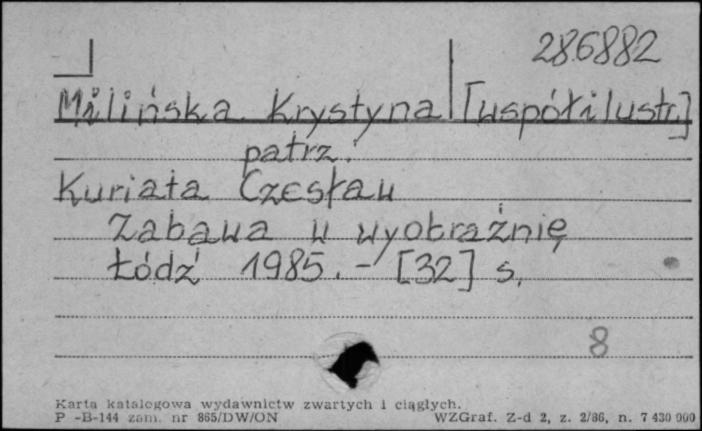 286882
Milińska Krystyna [współilustr.]
patrz:
Kuriata Czesław
Zabawa w wyobraźnię
Łódź 1985. - [32] s.
8
Karta katalogowa wydawnictw zwartych i ciągłych.
P -B-144 zam. nr 865/DW/ON WZGraf. Z-d 2, z. 2/86, n. 7 430 000